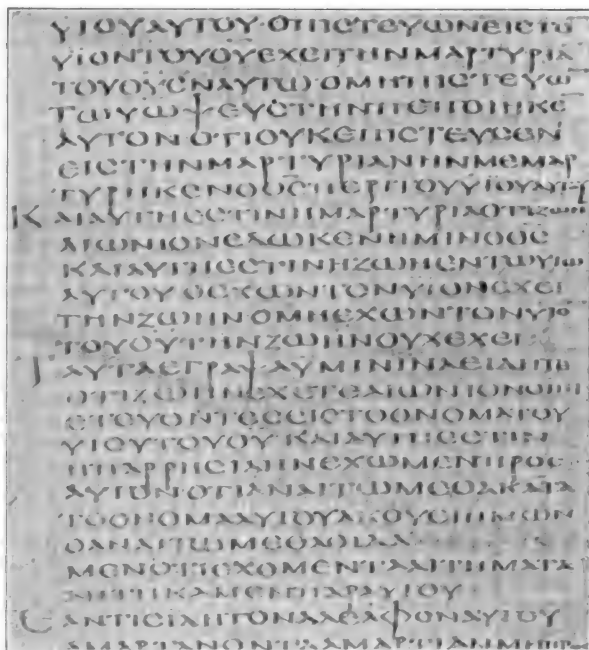 ΥΙΟΥΑΥΤΟΥ·ΟΠΙCΤΕΥΩΝΕΙCΤΟ
ΥΙΟΝΤΟΥΘΥΕΧΕΙΤΗΝΜΑΡΤΥΡΙΑ
ΤΟΥΘΥΕΝΑΥΤΩ·ΟΜΗΠΙCΤΕΥΩ
ΤΩΥΩΨΕΥCΤΗΝΠΕΠΟΙΗΚΕ
ΑΥΤΟΝΟΤΙΟΥΚΕΠΙCΤΕΥCΕΝ
ΕΙCΤΗΝΜΑΡΤΥΡΙΑΝΗΝΜΕΜΑΡ
ΤΥΡΗΚΕΝΟΘCΠΕΡΙΤΟΥΥΙΟΥΑΥΤΟΥ
ΚΑΙΑΥΤΗΕCΤΙΝΗΜΑΡΤΥΡΙΑΟΤΙΖΩΗΝ
ΑΙΩΝΙΟΝΕΔΩΚΕΝΗΜΙΝΟΘC
ΚΑΙΑΥΤΗΕCΤΙΝΗΖΩΗΕΝΤΩΥΙΩ
ΑΥΤΟΥΟΕΧΩΝΤΟΝΥΙΟΝΕΧΕΙ
ΤΗΝΖΩΗΝΟΜΗΕΧΩΝΤΟΝΥΙΟ
ΤΟΥΘΥΤΗΝΖΩΗΝΟΥΧΕΧΕΙ·
ΤΑΥΤΑΕΓΡΑΨΑΥΜΙΝΙΝΑΕΙΔΗΤΕ
ΟΤΙΖΩΗΝΕΧΕΤΕΑΙΩΝΙΟΝΟΙΠΙ
CΤΕΥΟΝΤΕCΕΙCΤΟΟΝΟΜΑΤΟΥ
ΥΙΟΥΤΟΥΘΥ ΚΑΙΑΥΤΗΕCΤΙΝ
ΗΠΑΡΡΗCΙΑΗΝΕΧΩΜΕΝΠΡΟC
ΑΥΤΟΝΟΤΙΑΝΑΙΤΩΜΕΘΑΚΑΤΑ
ΤΟΟΝΟΜΑΑΥΤΟΥΑΚΟΥΕΙΗΜΩΝ
ΟΑΝΑΙΤΩΜΕΘΑΟΙΔΑ
ΜΕΝΟΤΙΕΧΟΜΕΝΤΑΑΙΤΗΜΑΤΑ
ΑΗΤΗΚΑΜΕΝΠΑΡΑΥΤΟΥ·
ΕΑΝΤΙCΙΔΗΤΟΝΑΔΕΛΦΟΝΑΥΤΟΥ
ΑΜΑΡΤΑΝΟΝΤΑΑΜΑΡΤΙΑΝΜΗΠΡΟ